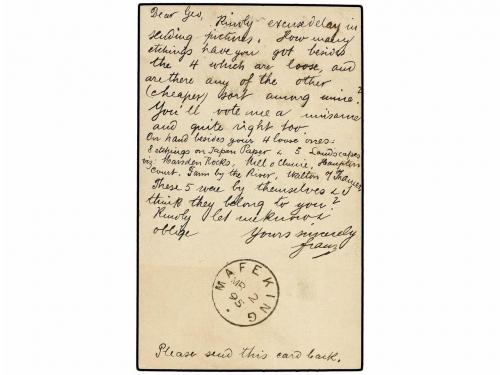 Dear Geo, Kindly excuse delay in
sending pictures. How many
etchings have you got besides
the 4 which are loose, and
are there any of the other
(cheaper) sort among mine?
You'll vote me a nuisance
and quite right too.
On hand besides your 4 loose ones:
8 etchings on Japan Paper & 5 Landscapes
viz: Marsden Rocks, Mill Hampton
Court, Farm by the River, Walton Thames
These 5 were by themselves & I
think they belong to you?
Kindly let me know &
oblige Yours sincerely
Franz
MAFEKING
MR 2
95
Please send this card back.